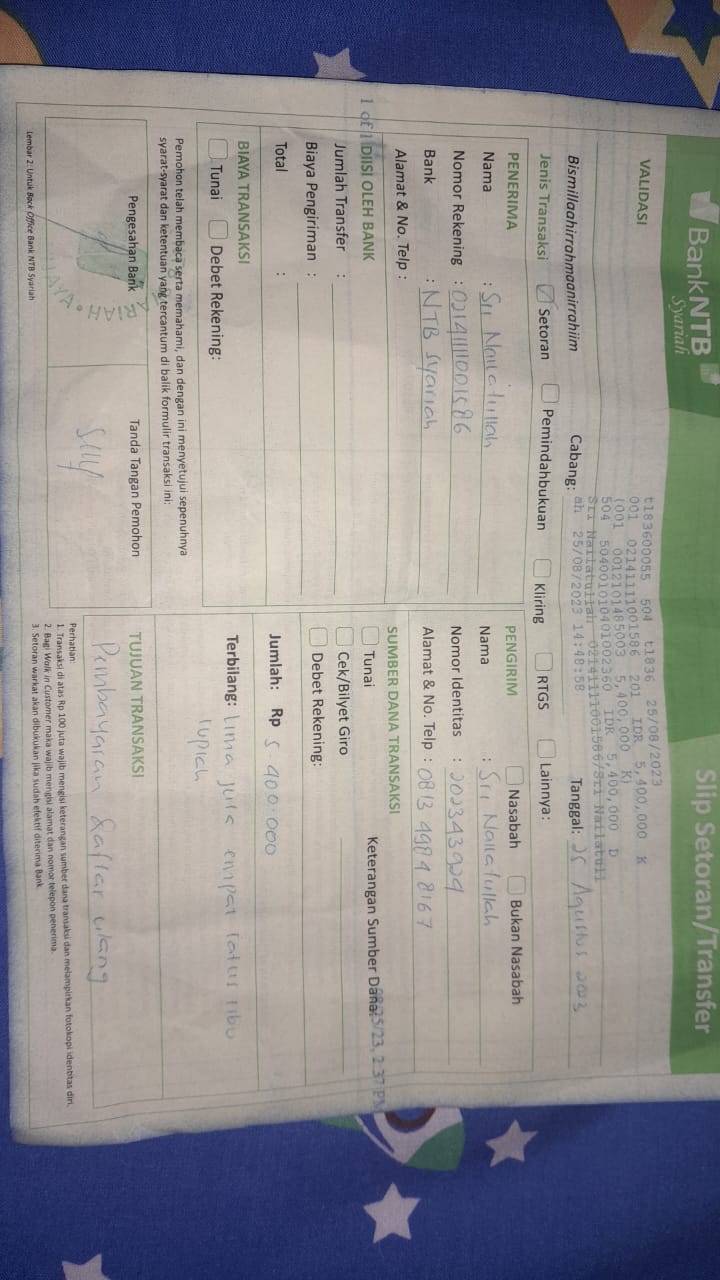 BankNTB
Syariah
Slip Setoran/Transfer
VALIDASI
t183600055 504 t1836 25/08/2023
001 02141111001586 201 IDR 5,400,000 K
(001 0012101485003 5,400,000 K)
504 504001010401002360 IDR 5,400,000 D
Sri Nailatullah 02141111001586/Sri Nailatull
ah 25/08/2023 14:48:58
Bismillaahirrahmaanirrahiim
Cabang:
Tanggal: 25 Agustus 2023
Jenis Transaksi Setoran Pemindahbukuan Kliring RTGS Lainnya:
PENERIMA
Nama : Sri Nailatullah
Nomor Rekening : 02141111001586
Bank : NTB Syariah
Alamat & No. Telp :
PENGIRIM Nasabah Bukan Nasabah
Nama : Sri Nailatullah
Nomor Identitas : 202343929
Alamat & No. Telp : 0813 4984 8167
1 of 1
DIISI OLEH BANK
Jumlah Transfer :
Biaya Pengiriman :
Total :
SUMBER DANA TRANSAKSI
Tunai Keterangan Sumber Dana:
08/25/23, 2:37 PM
Cek/Bilyet Giro
Debet Rekening:
BIAYA TRANSAKSI
Tunai Debet Rekening:
Jumlah: Rp 5.400.000
Terbilang: lima juta empat ratus ribu
rupiah
Pemohon telah membaca serta memahami, dan dengan ini menyetujui sepenuhnya
syarat-syarat dan ketentuan yang tercantum di balik formulir transaksi ini:
Pengesahan Bank
Tanda Tangan Pemohon
TUJUAN TRANSAKSI
Pembayaran daftar ulang
Perhatian:
1. Transaksi di atas Rp 100 juta wajib mengisi keterangan sumber dana transaksi dan melampirkan fotokopi identitas diri.
2. Bagi Walk in Customer maka wajib mengisi alamat dan nomor telepon penerima.
3. Setoran warkat akan dibukukan jika sudah efektif diterima Bank.
Lembar 2: Untuk Back Office Bank NTB Syariah